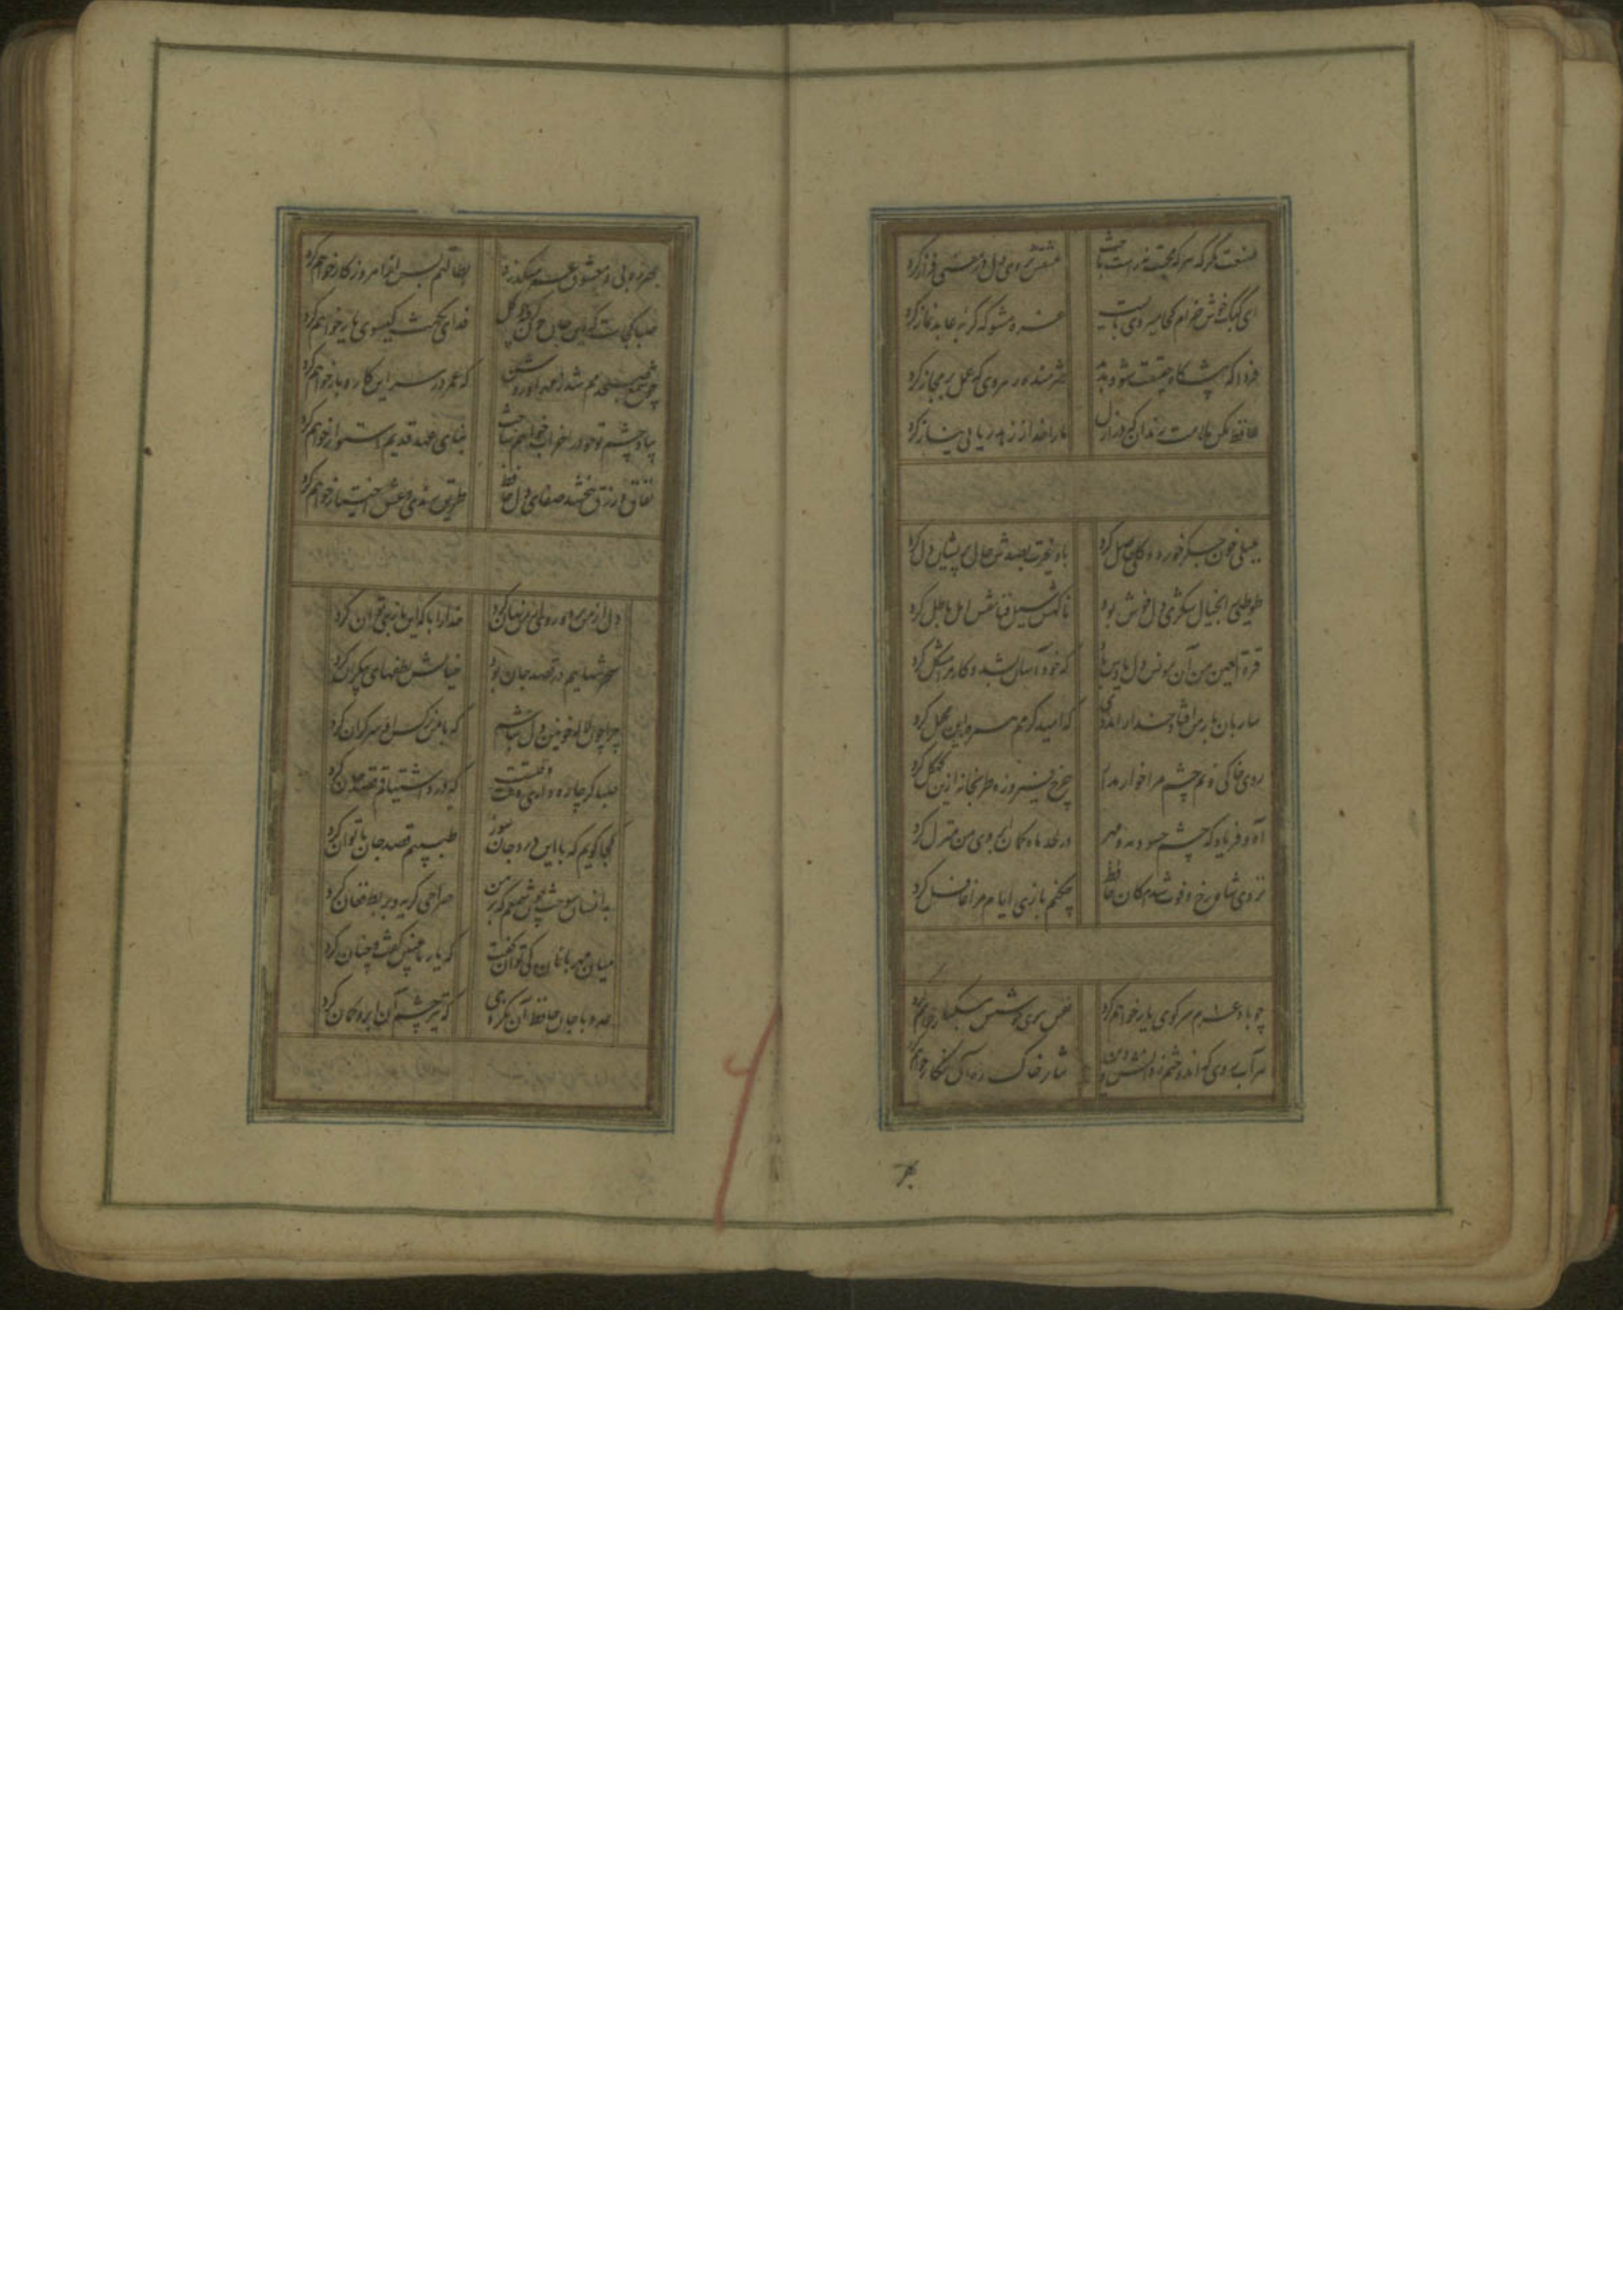 صنعت مکن که هر که محبت نه راست باخت
عشقش بروی دل در معنی فراز کرد
ای کبک خوش خرام کجا میروی بایست
غره مشو که گربه عابد نماز کرد
فردا که پیشگاه حقیقت شود پدید
شرمنده رهروی که عمل بر مجاز کرد
حافظ مکن ملامت رندان که در ازل
ما را خدا از زهد ریا بی نیاز کرد
بلبلی خون جگر خورد و گلی حاصل کرد
باد غیرت بصدش حال پریشان دل کرد
طوطیی را بخیال شکری دل خوش بود
ناگهش سیل فنا نقش امل باطل کرد
قرة العین من آن میوه دل یادش باد
که خود آسان بشد و کار مرا مشکل کرد
ساربان بار من افتاد خدا را مددی
که امید کرمم همره این محمل کرد
روی خاکی و نم چشم مرا خوار مدار
چرخ فیروزه طربخانه ازین کهگل کرد
آه و فریاد که از چشم حسود مه و مهر
در لحد ماه کمان ابروی من منزل کرد
نزدی شاه رخ و فوت شد امکان حافظ
چکنم بازی ایام مرا غافل کرد
چو باد عزم سر کوی یار خواهم کرد
نفس ببوی خوشش مشکبار خواهم کرد
هر آب روی که اندوختم ز دانش و دین
نثار خاک ره آن نگار خواهم کرد
بهر
بهرزه بی می و معشوق عمر میگذرد
بطالتم بس از امروز کار خواهم کرد
صبا کجاست که این جان خون گرفته چو گل
فدای نکهت گیسوی یار خواهم کرد
چو شمع صبحدمم شد ز مهر او روشن
که عمر در سر این کار و بار خواهم کرد
بیاد چشم تو خود را خراب خواهم ساخت
بنای عهد قدیم استوار خواهم کرد
نفاق و زرق نبخشد صفای دل حافظ
طریق رندی و عشق اختیار خواهم کرد
دل از من برد و روی از من نهان کرد
خدا را با که این بازی توان کرد
سحر تنهاییم در قصد جان بود
خیالش لطفهای بیکران کرد
چرا چون لاله خونین دل نباشم
که با من نرگس او سر گران کرد
صبا گر چاره داری وقت وقتست
که درد اشتیاقم قصد جان کرد
کجا گویم که با این درد جان سوز
طبیبم قصد جان ناتوان کرد
بدانسان سوخت چون شمعم که بر من
صراحی گریه و بربط فغان کرد
میان مهربانان کی توان گفت
که یار ما چنین گفت و چنان کرد
عدو با جان حافظ آن نکردی
که تیر چشم آن ابرو کمان کرد